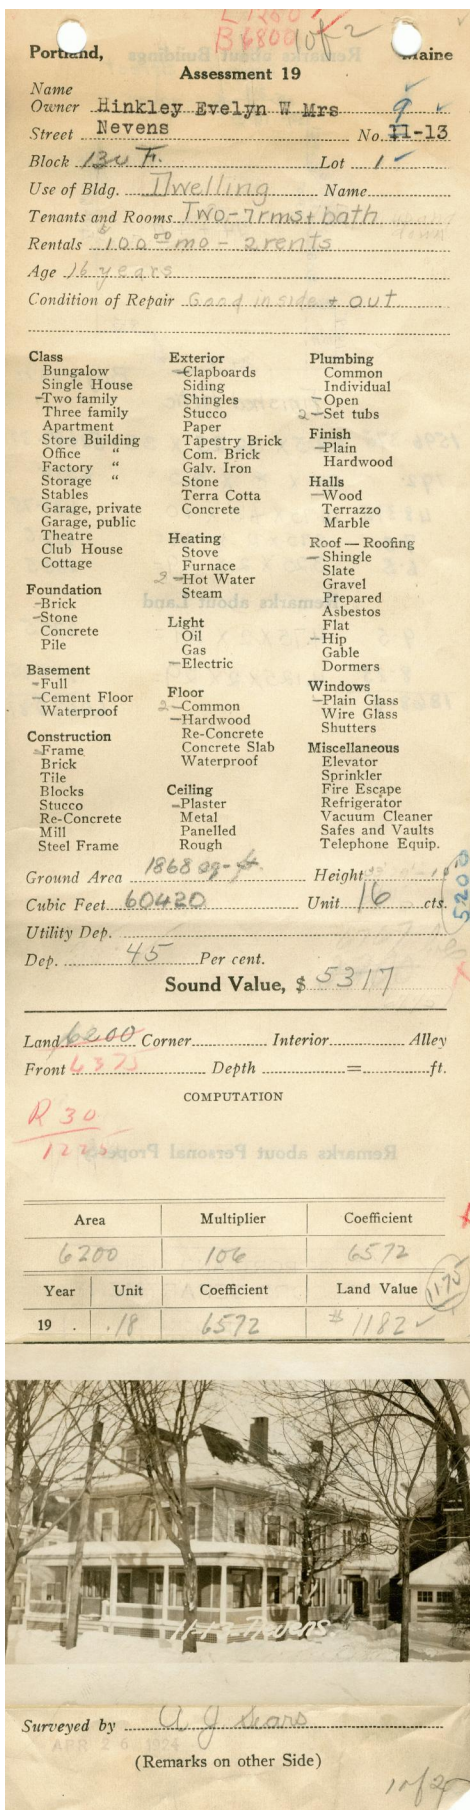 L 1200
B 6800 1 of 2
Portland, Maine
Assessment 19
Name
Owner Hinkley Evelyn W Mrs 9
Street Nevens No. 11-13
Block 130 F. Lot 1
Use of Bldg. Dwelling Name
Tenants and Rooms Two-7rms + bath
Rentals $100.00 mo - 2 rents
Age 16 years
Condition of Repair Good inside + out
Class
Bungalow
Single House
-Two family
Three family
Apartment
Store Building
Office "
Factory "
Storage "
Stables
Garage, private
Garage, public
Theatre
Club House
Cottage
Foundation
-Brick
-Stone
Concrete
Pile
Basement
-Full
-Cement Floor
Waterproof
Construction
-Frame
Brick
Tile
Blocks
Stucco
Re-Concrete
Mill
Steel Frame
Exterior
-Clapboards
Siding
Shingles
Stucco
Paper
Tapestry Brick
Com. Brick
Galv. Iron
Stone
Terra Cotta
Concrete
Heating
Stove
Furnace
2-Hot Water
Steam
Light
Oil
Gas
-Electric
Floor
2-Common
-Hardwood
Re-Concrete
Concrete Slab
Waterproof
Ceiling
-Plaster
Metal
Panelled
Rough
Plumbing
Common
Individual
-Open
2-Set tubs
Finish
-Plain
Hardwood
Halls
-Wood
Terrazzo
Marble
Roof — Roofing
-Shingle
Slate
Gravel
Prepared
Asbestos
Flat
-Hip
Gable
Dormers
Windows
-Plain Glass
Wire Glass
Shutters
Miscellaneous
Elevator
Sprinkler
Fire Escape
Refrigerator
Vacuum Cleaner
Safes and Vaults
Telephone Equip.
Ground Area 1868 sq-ft. Height
Cubic Feet 60420 Unit 16 cts.
5200
Utility Dep.
Dep. 45 Per cent.
Sound Value, $ 5317
Land 6200 Corner Interior Alley
Front 6375 Depth = ft.
COMPUTATION
R 30
1225
Area Multiplier Coefficient
6200 106 6572
Year Unit Coefficient Land Value 1175
19 . .18 6572 $1182
11-13 Nevens.
Surveyed by A J Sears
APR 26 1924
(Remarks on other Side)
1 of 2